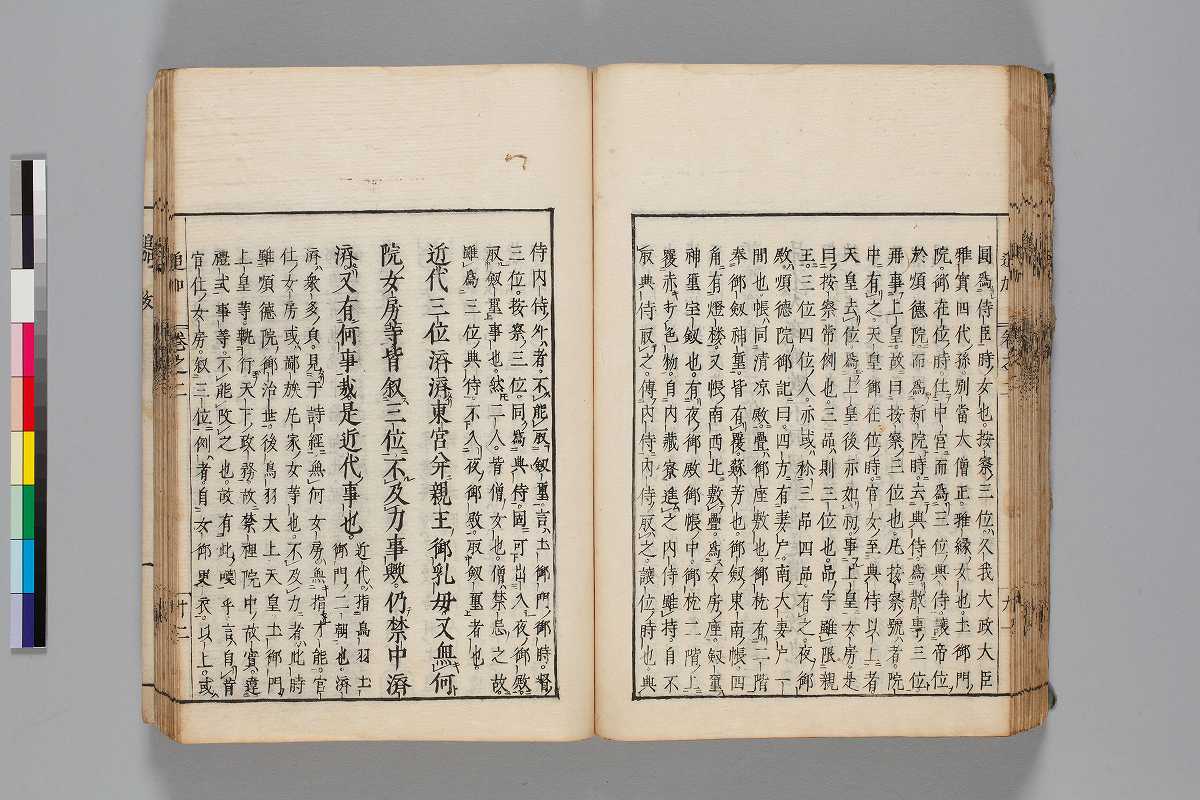 圓爲侍臣時女也。按察三位。久我大政大臣
雅實四代孫別當大僧正。雅縁女也。土御門
院。御在位時仕中宮而爲三位典侍讓帝位
於順德院而爲新院時。去典侍爲散事三位
再事上皇故曰按察三位也。凡按察號者。院
中有之。天皇御在位時。官女至典侍以上者
天皇去位爲上皇後亦如初。事上皇女房是
曰按察常例也。三品則三位也品字雖限親
王。三位四位人。亦或稱三品四品。有之。夜御
殿。順德院御記曰。四方有妻戸。南大妻戸一
間也帳同清凉殿。疊御座敷也。御枕有二階
奉御劔神璽皆有覆。蘇芳也。御劔東南帳四
角有燈楼。又帳南西北敷疊。爲女房座。劔璽
神璽宝劔也。有夜御殿御帳中。御枕二階上
覆赤色物。自内藏寮進之内侍雖持。自不
取典侍取之。傳内侍内侍取之。讓位時也。典
侍内侍外者。不能取劔璽。言土御門御時。督
三位。按察三位。同爲典侍。固可出入夜御殿。
取劔璽事也。然二人。皆僧女也。僧禁忌之故
雖爲三位典侍。不入夜御殿。取劔璽者也
近代三位濟濟東宮并親王御乳母。又無何
院女房等皆叙三位不及力事歟。仍禁中濟
濟。又有何事哉是近代事也。
近代指鳥羽土
御門二朝也。濟
濟衆多皃。見于詩經無何女房無指才能。官
仕女房或鄙族凡家女等也。不及力者此時
雖順德院御治世。後鳥羽大上天皇土御門
上皇等。執行天下政務故禁裡院中故實。違
禮式事等。不能改之也。故有此嘆乎。言自昔
官仕女房。叙三位例者。自女御更衣。以上。或
追加
卷之二
十二